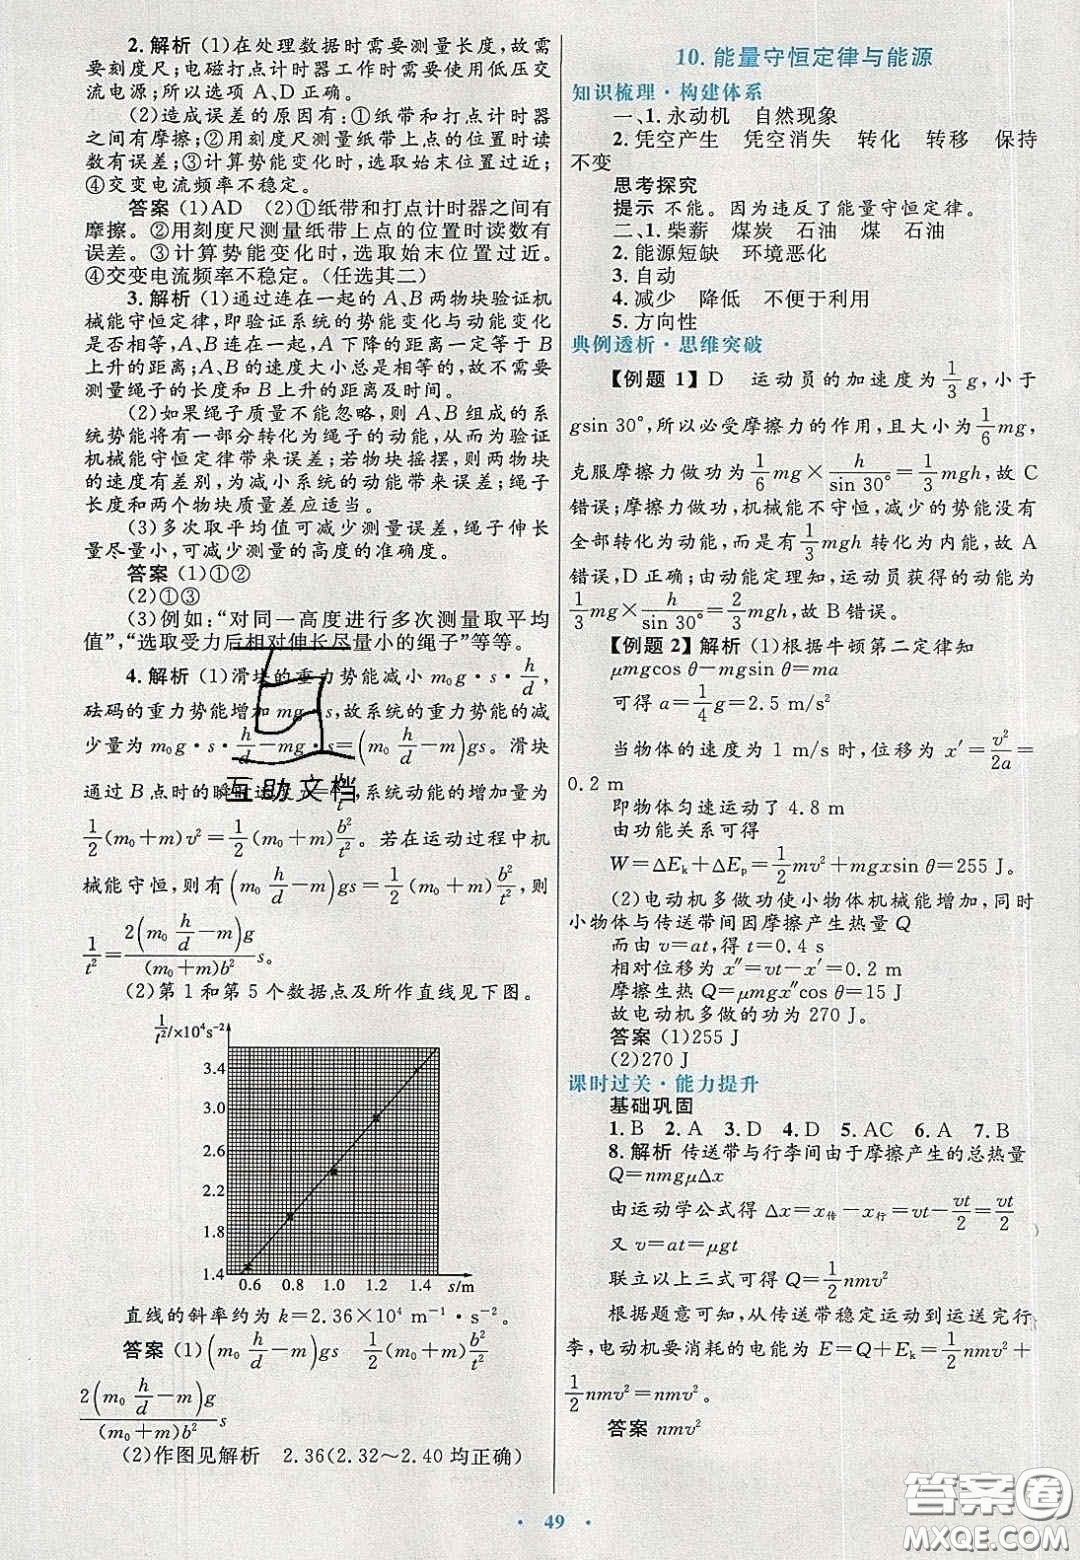 2. 解析 (1)在处理数据时需要测量长度,故需
要刻度尺;电磁打点计时器工作时需要使用低压交
流电源;所以选项 A、D 正确。
(2)造成误差的原因有:①纸带和打点计时器
之间有摩擦;②用刻度尺测量纸带上点的位置时读
数有误差;③计算势能变化时,选取始末位置过近;
④交变电流频率不稳定。
答案 (1)AD (2)①纸带和打点计时器之间有
摩擦。②用刻度尺测量纸带上点的位置时读数有
误差。③计算势能变化时,选取始末位置过近。
④交变电流频率不稳定。(任选其二)
3. 解析 (1)通过连在一起的 A、B 两物块验证机
械能守恒定律,即验证系统的势能变化与动能变化
是否相等,A、B 连在一起,A 下降的距离一定等于 B
上升的距离;A、B 的速度大小总是相等的,故不需要
测量绳子的长度和 B 上升的距离及时间。
(2)如果绳子质量不能忽略,则 A、B 组成的系
统势能将有一部分转化为绳子的动能,从而为验证
机械能守恒定律带来误差;若物块摇摆,则两物块
的速度有差别,为减小系统的动能带来误差;绳子
长度和两个物块质量差应适当。
(3)多次取平均值可减少测量误差,绳子伸长
量尽量小,可减少测量的高度的准确度。
答案 (1)①②
(2)①③
(3)例如:“对同一高度进行多次测量取平均
值”,“选取受力后相对伸长尽量小的绳子”等等。
4. 解析 (1)滑块的重力势能减小 m₀g·s·h/d,
砝码的重力势能增加 mg·s,故系统的重力势能的减
少量为 m₀g·s·h/d−mg·s=(m₀ h/d−m)gs。滑块
通过 B 点时的瞬时速度 v=b/t,系统动能的增加量为
1/2(m₀+m)v²=1/2(m₀+m)b²/t²。若在运动过程中机
械能守恒,则有(m₀ h/d−m)gs=1/2(m₀+m)b²/t²,则
1/t²=2(m₀ h/d−m)g/(m₀+m)b² s。
(2)第 1 和第 5 个数据点及所作直线见下图。
1/t²/×10⁴s⁻²
3.4
3.0
2.6
2.2
1.8
1.4
0.6 0.8 1.0 1.2 1.4 s/m
直线的斜率约为 k=2.36×10⁴ m⁻¹·s⁻²。
答案 (1)(m₀ h/d−m)gs 1/2(m₀+m)b²/t²
2(m₀ h/d−m)g/(m₀+m)b² s
(2)作图见解析 2.36(2.32～2.40 均正确)
互助文档
10. 能量守恒定律与能源
知识梳理·构建体系
一、1. 永动机 自然现象
2. 凭空产生 凭空消失 转化 转移 保持
不变
思考探究
提示 不能。因为违反了能量守恒定律。
二、1. 柴薪 煤炭 石油 煤 石油
2. 能源短缺 环境恶化
3. 自动
4. 减少 降低 不便于利用
5. 方向性
典例透析·思维突破
【例题 1】D 运动员的加速度为 1/3 g,小于
gsin 30°,所以必受摩擦力的作用,且大小为 1/6 mg,
克服摩擦力做功为 1/6 mg×h/sin 30°=1/3 mgh,故 C
错误;摩擦力做功,机械能不守恒,减少的势能没有
全部转化为动能,而是有 1/3 mgh 转化为内能,故 A
错误,D 正确;由动能定理知,运动员获得的动能为
1/3 mg×h/sin30°=2/3 mgh,故 B 错误。
【例题 2】解析 (1)根据牛顿第二定律知
μmgcos θ−mgsin θ=ma
可得 a=1/4 g=2.5 m/s²
当物体的速度为 1 m/s 时,位移为 x′=v²/2a=
0.2 m
即物体匀速运动了 4.8 m
由功能关系可得
W=ΔEₖ+ΔEₚ=1/2 mv²+mgxsin θ=255 J。
(2)电动机多做功使小物体机械能增加,同时
小物体与传送带间因摩擦产生热量 Q
而由 v=at,得 t=0.4 s
相对位移为 x″=vt−x′=0.2 m
摩擦生热 Q=μmgx″cos θ=15 J
故电动机多做的功为 270 J。
答案 (1)255 J
(2)270 J
课时过关·能力提升
基础巩固
1. B 2. A 3. D 4. D 5. AC 6. A 7. B
8. 解析 传送带与行李间由于摩擦产生的总热量
Q=nmgμΔx
由运动学公式得 Δx=x传−x行=vt−vt/2=vt/2
又 v=at=μgt
联立以上三式可得 Q=1/2 nmv²
根据题意可知,从传送带稳定运动到运送完行
李,电动机要消耗的电能为 E=Q+Eₖ=1/2 nmv²+
1/2 nmv²=nmv²。
答案 nmv²
·49·
答案圈
MXQE.COM